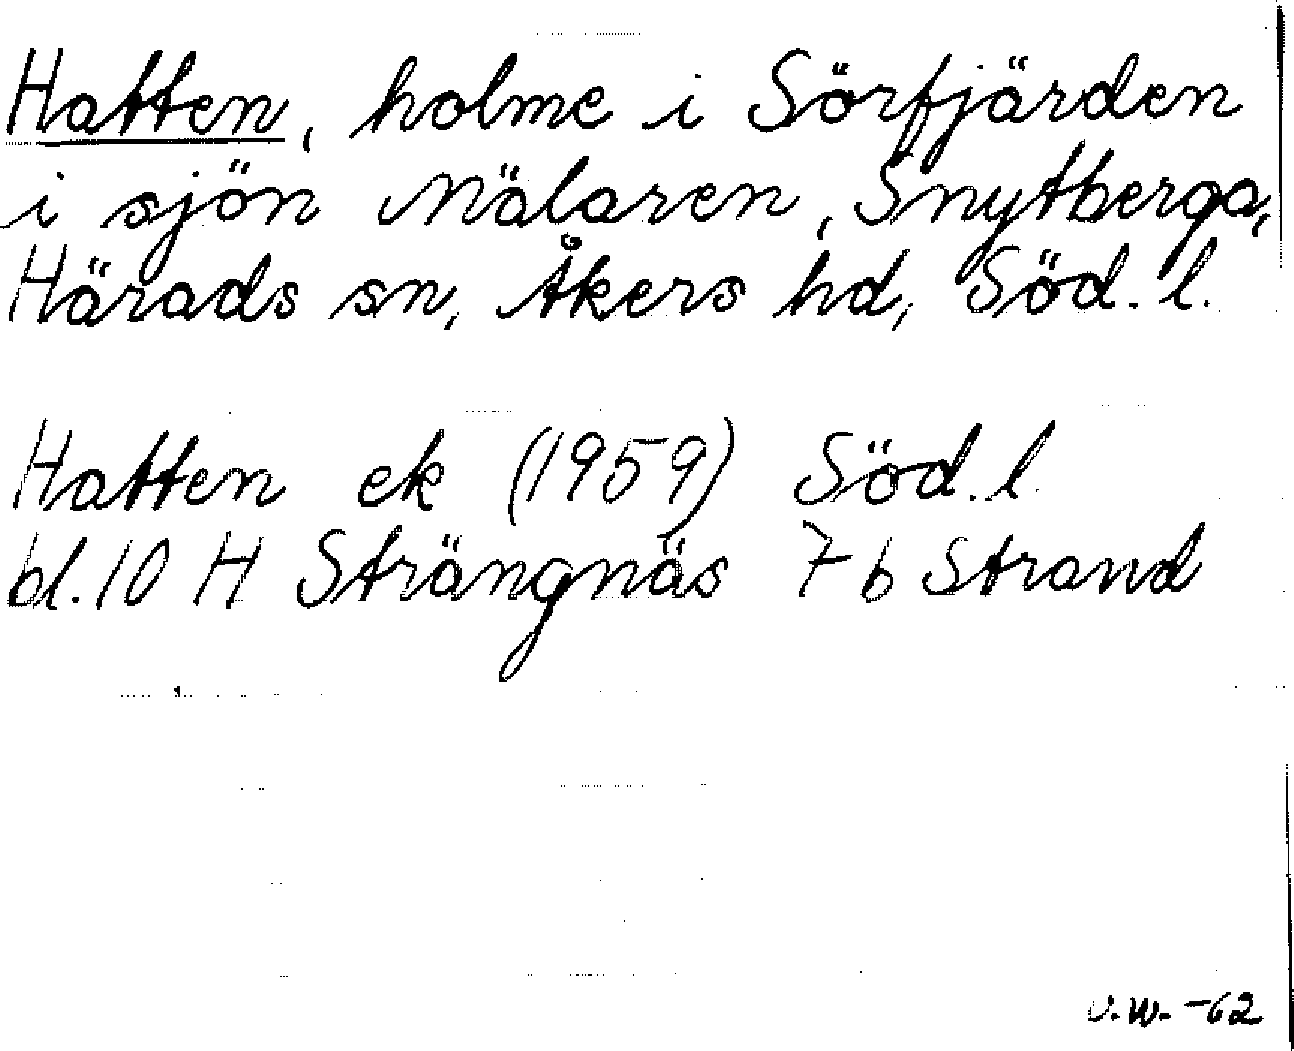 Hatten, holme i Sörfjärden
i sjön Mälaren, Snytberga,
Härads sn, Åkers hd, Söd. l.
Hatten ek (1959) Söd. l.
bl. 10 H Strängnäs 7 b Strand
U.W. -62